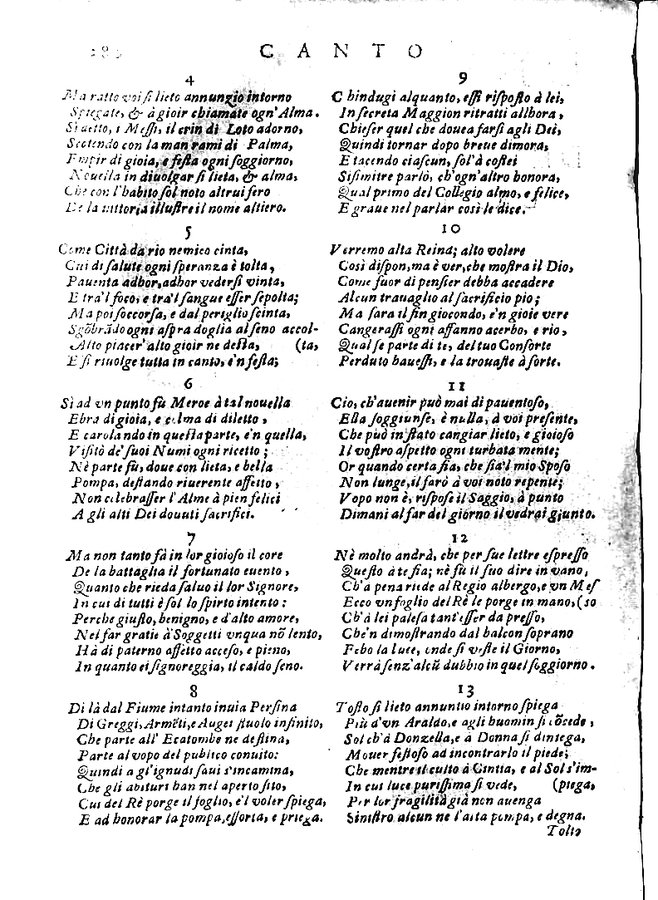 CANTO
4
Ma ratto voi sì lieto annunzio intorno
Spiegate, & à gioir chiamate ogn'Alma.
Si detto, i Messi, il crin di Loto adorno,
Scotendo con la man rami di Palma,
Empir di gioia, e festa ogni soggiorno,
Novella in divolgar sì lieta, & alma,
Che con l'habito sol noto altrui fero
De la vittoria illustre il nome altiero.
5
Come Città da rio nemico cinta,
Cui di salute ogni speranza è tolta,
Pauenta adhor, adhor vedersi vinta,
E tra'l foco, e tra'l sangue esser sepolta;
Ma poi soccorsa, e dal periglio scinta,
Sgõbrãdo ogni aspra doglia al seno accol-
Alto piacer'alto gioir ne desta, (ta,
E si riuolge tutta in canto, e'n festa;
6
Sì ad vn punto fù Meroe à tal nouella
Ebra di gioia, e colma di diletto,
E carolando in questa parte, e'n quella,
Visitò de' suoi Numi ogni ricetto;
Nè parte fù, doue con lieta, e bella
Pompa, destando riuerente affetto,
Non celebrasser l'Alme à pien felici
A gli alti Dei douuti sacrifici.
7
Ma non tanto fà in lor gioioso il core
De la battaglia il fortunato euento,
Quanto che rieda saluo il lor Signore,
In cui di tutti è sol lo spirto intento:
Perche giusto, benigno, e d'alto amore,
Nel far gratie à Soggetti vnqua nõ lento,
Hà di paterno affetto acceso, e pieno,
In quanto ei signoreggia, il caldo seno.
8
Di là dal Fiume intanto inuia Persina
Di Greggi, Armẽti, e Augei stuolo infinito,
Che parte all' Ecatombe ne destina,
Parte al vopo del publico conuito:
Quindi a gl'ignudi saui s'incamina,
Che gli abituri han nel aperto sito,
Cui del Rè porge il foglio, e'l voler spiega,
E ad honorar la pompa, essorta, e priega.
9
C hindugi alquanto, essi risposto à lei,
In secreta Maggion ritratti allhora,
Chieser quel che douea farsi agli Dei,
Quindi tornar dopo breue dimora,
E tacendo ciascun, sol'à costei
Sisimitre parlò, ch'ogn'altro honora,
Qual primo del Collegio almo, e felice,
E graue nel parlar così le dice.
10
Verremo alta Reina; alto volere
Così dispon, ma è ver, che mostra il Dio,
Come fuor di pensier debba accadere
Alcun trauaglio al sacrificio pio;
Ma fara il fin giocondo, e'n gioie vere
Cangerassi ogni affanno acerbo, e rio,
Qual se parte di te, del tuo Consorte
Perduto hauessi, e la trouaste à sorte.
11
Cio, ch'auenir può mai di pauentoso,
Ella soggiunse, è nulla, à voi presente,
Che può in stato cangiar lieto, e gioioso
Il vostro aspetto ogni turbata mente;
Or quando certa fia, che sia'l mio Sposo
Non lunge, il farò à voi noto repente;
Vopo non è, rispose il Saggio, à punto
Dimani al far del giorno il vedrai giunto.
12
Nè molto andrà, che per sue lettre espresso
Questo à te fia; nè fù il suo dire in vano,
Ch'à pena riede al Regio albergo, e vn Mes
Ecco vn foglio del Rè le porge in mano, (so
Ch'à lei palesa tant'esser da presso,
Che'n dimostrando dal balcon soprano
Febo la luce, onde si veste il Giorno,
Verrà senz'alcũ dubbio in quel soggiorno.
13
Tosto sì lieto annuntio intorno spiega
Più d'vn Araldo, e agli huomin si cõcede,
Sol ch'à Donzella, e à Donna si diniega,
Mouer festoso ad incontrarlo il piede;
Che mentre il culto à Cintia, e al Sol s'im-
In cui luce purissima si vede, (piega,
Per lor fragilità già non auenga
Sinistro alcun ne l'alta pompa, e degna.
Tolto